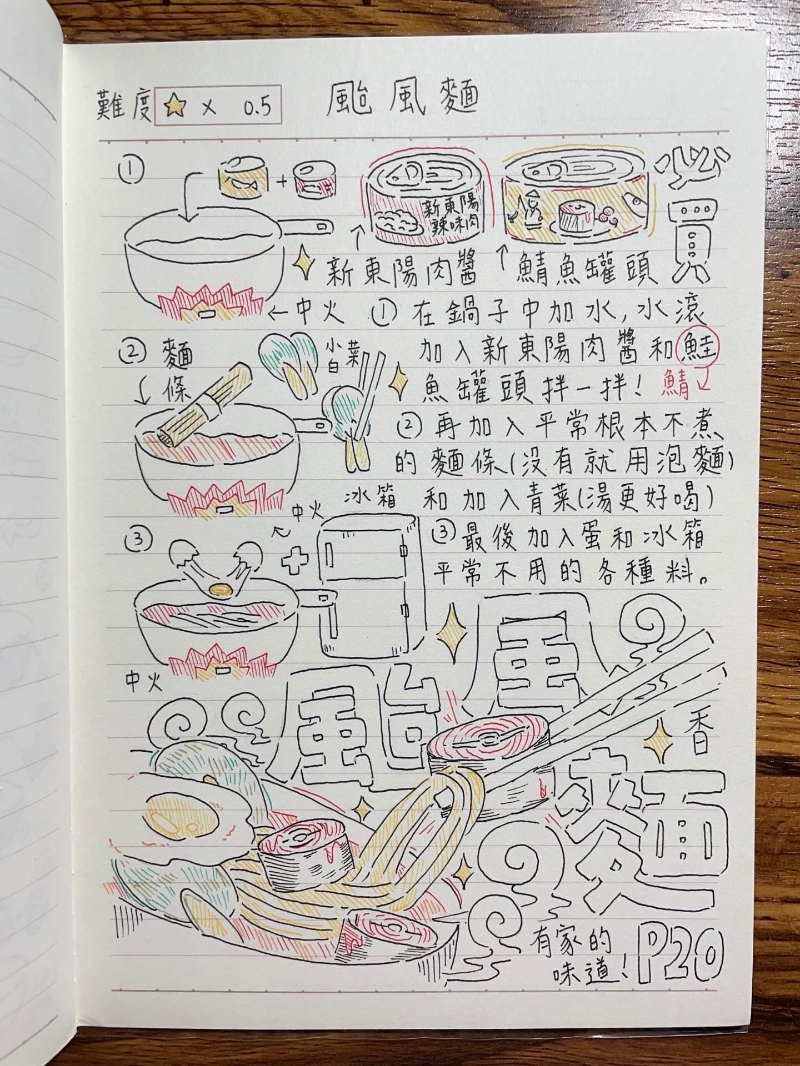 難度 ☆ x 0.5
颱風麵
①
新東陽
辣味肉
必買
新東陽肉醬
鯖魚罐頭
←中火
①在鍋子中加水,水滾
加入新東陽肉醬和鮭
魚罐頭拌一拌!
鯖
②麵
條
小
白
菜
②再加入平常根本不煮
的麵條(沒有就用泡麵)
和加入青菜(湯更好喝)
中火
冰箱
③
③最後加入蛋和冰箱
平常不用的各種料。
中火
颱風麵
香
有家的
味道!
P20